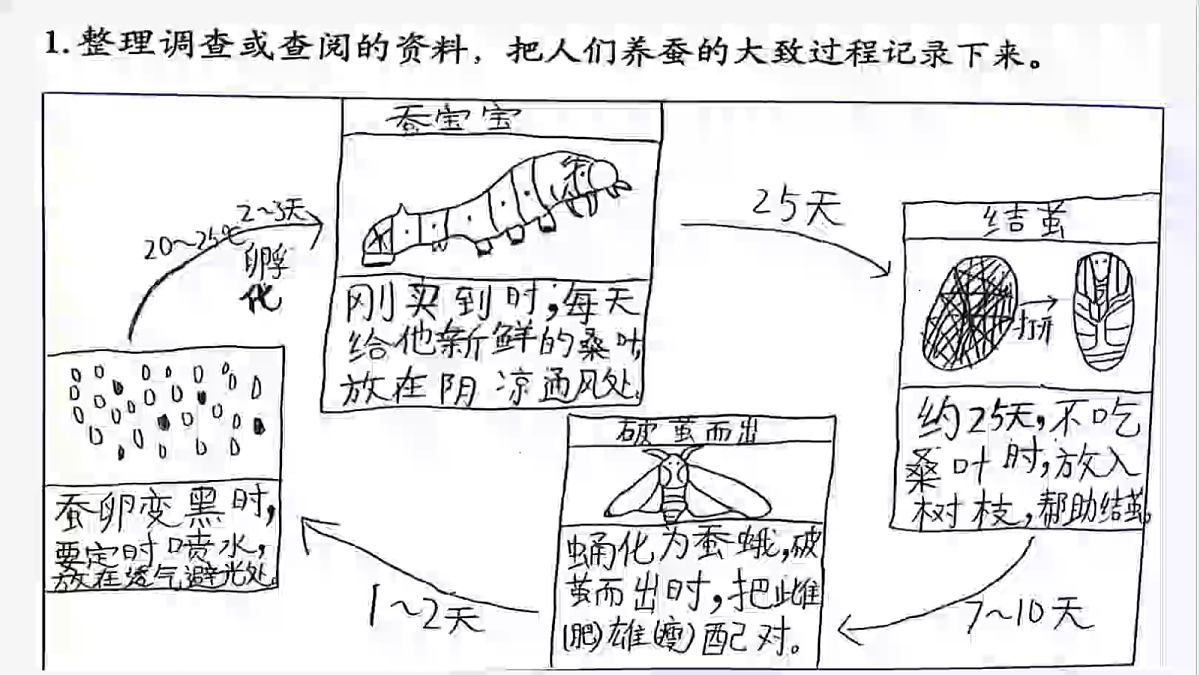 1. 整理调查或查阅的资料，把人们养蚕的大致过程记录下来。
蚕宝宝
刚买到时，每天
给他新鲜的桑叶，
放在阴凉通风处。
25天
结茧
打开
约25天，不吃
桑叶时，放入
树枝，帮助结茧。
7~10天
破茧而出
蛹化为蚕蛾，破
茧而出时，把雌
(肥)雄(瘦)配对。
1~2天
蚕卵变黑时，
要定时喷水，
放在透气避光处。
20~25℃
2~3天
孵
化